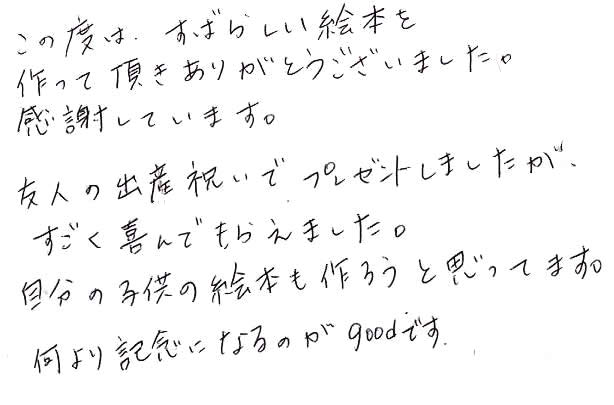 この度は、すばらしい絵本を
作って頂きありがとうございました。
感謝しています。
友人の出産祝いでプレゼントしましたが、
すごく喜んでもらえました。
自分の子供の絵本も作ろうと思ってます。
何より記念になるのがgoodです。